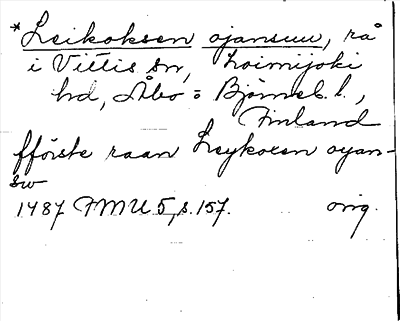 *Leikoksen ojansuu, rå
i Vittis sn, Loimijoki
hd, Åbo=Björneb. l.,
Finland
fförste raan Leykoxen oyan-
sw
1487 FMU 5, s. 157. orig.